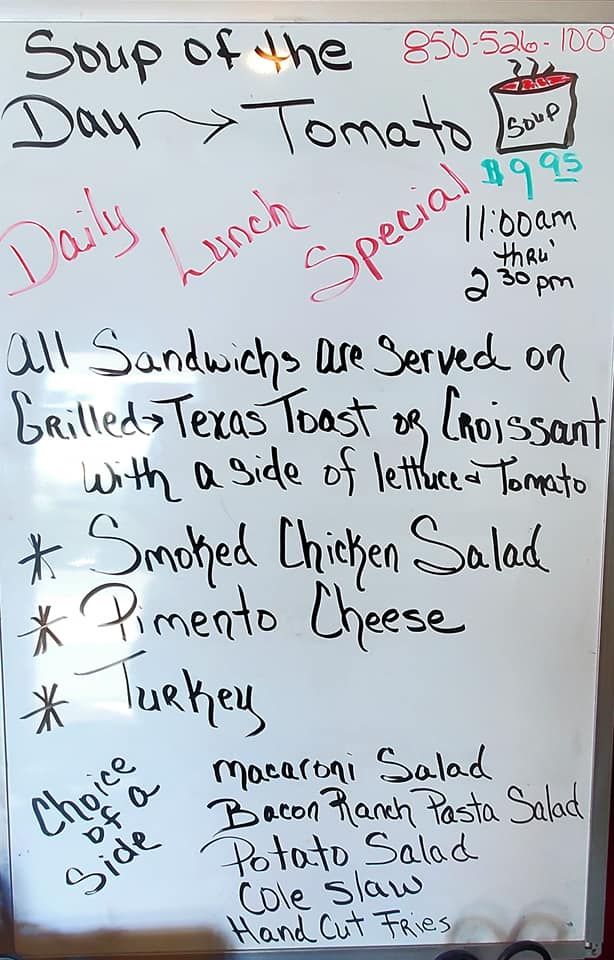 Soup of the
850-526-1000
Day → Tomato
Soup
$9 95
Daily Lunch Special
11:00am
thru'
2 30 pm
All Sandwichs are Served on
Grilled → Texas Toast or Croissant
with a side of lettuce & Tomato
* Smoked Chicken Salad
* Pimento Cheese
* Turkey
Choice
of a
Side
Macaroni Salad
Bacon Ranch Pasta Salad
Potato Salad
Cole Slaw
Hand Cut Fries